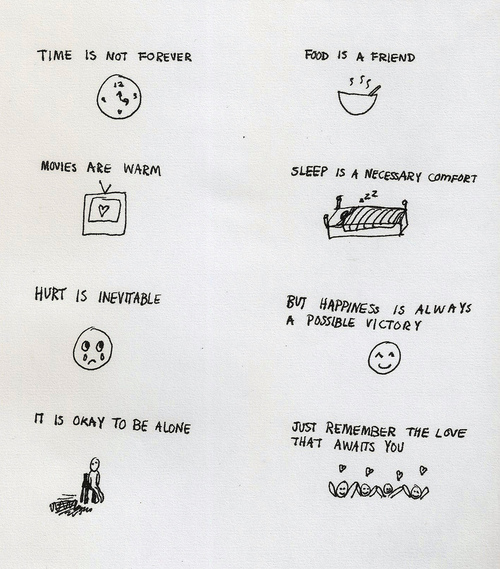 TIME IS NOT FOREVER
12
3
FOOD IS A FRIEND
MOVIES ARE WARM
SLEEP IS A NECESSARY COMFORT
zZZ
HURT IS INEVITABLE
BUT HAPPINESS IS ALWAYS
A POSSIBLE VICTORY
IT IS OKAY TO BE ALONE
JUST REMEMBER THE LOVE
THAT AWAITS YOU